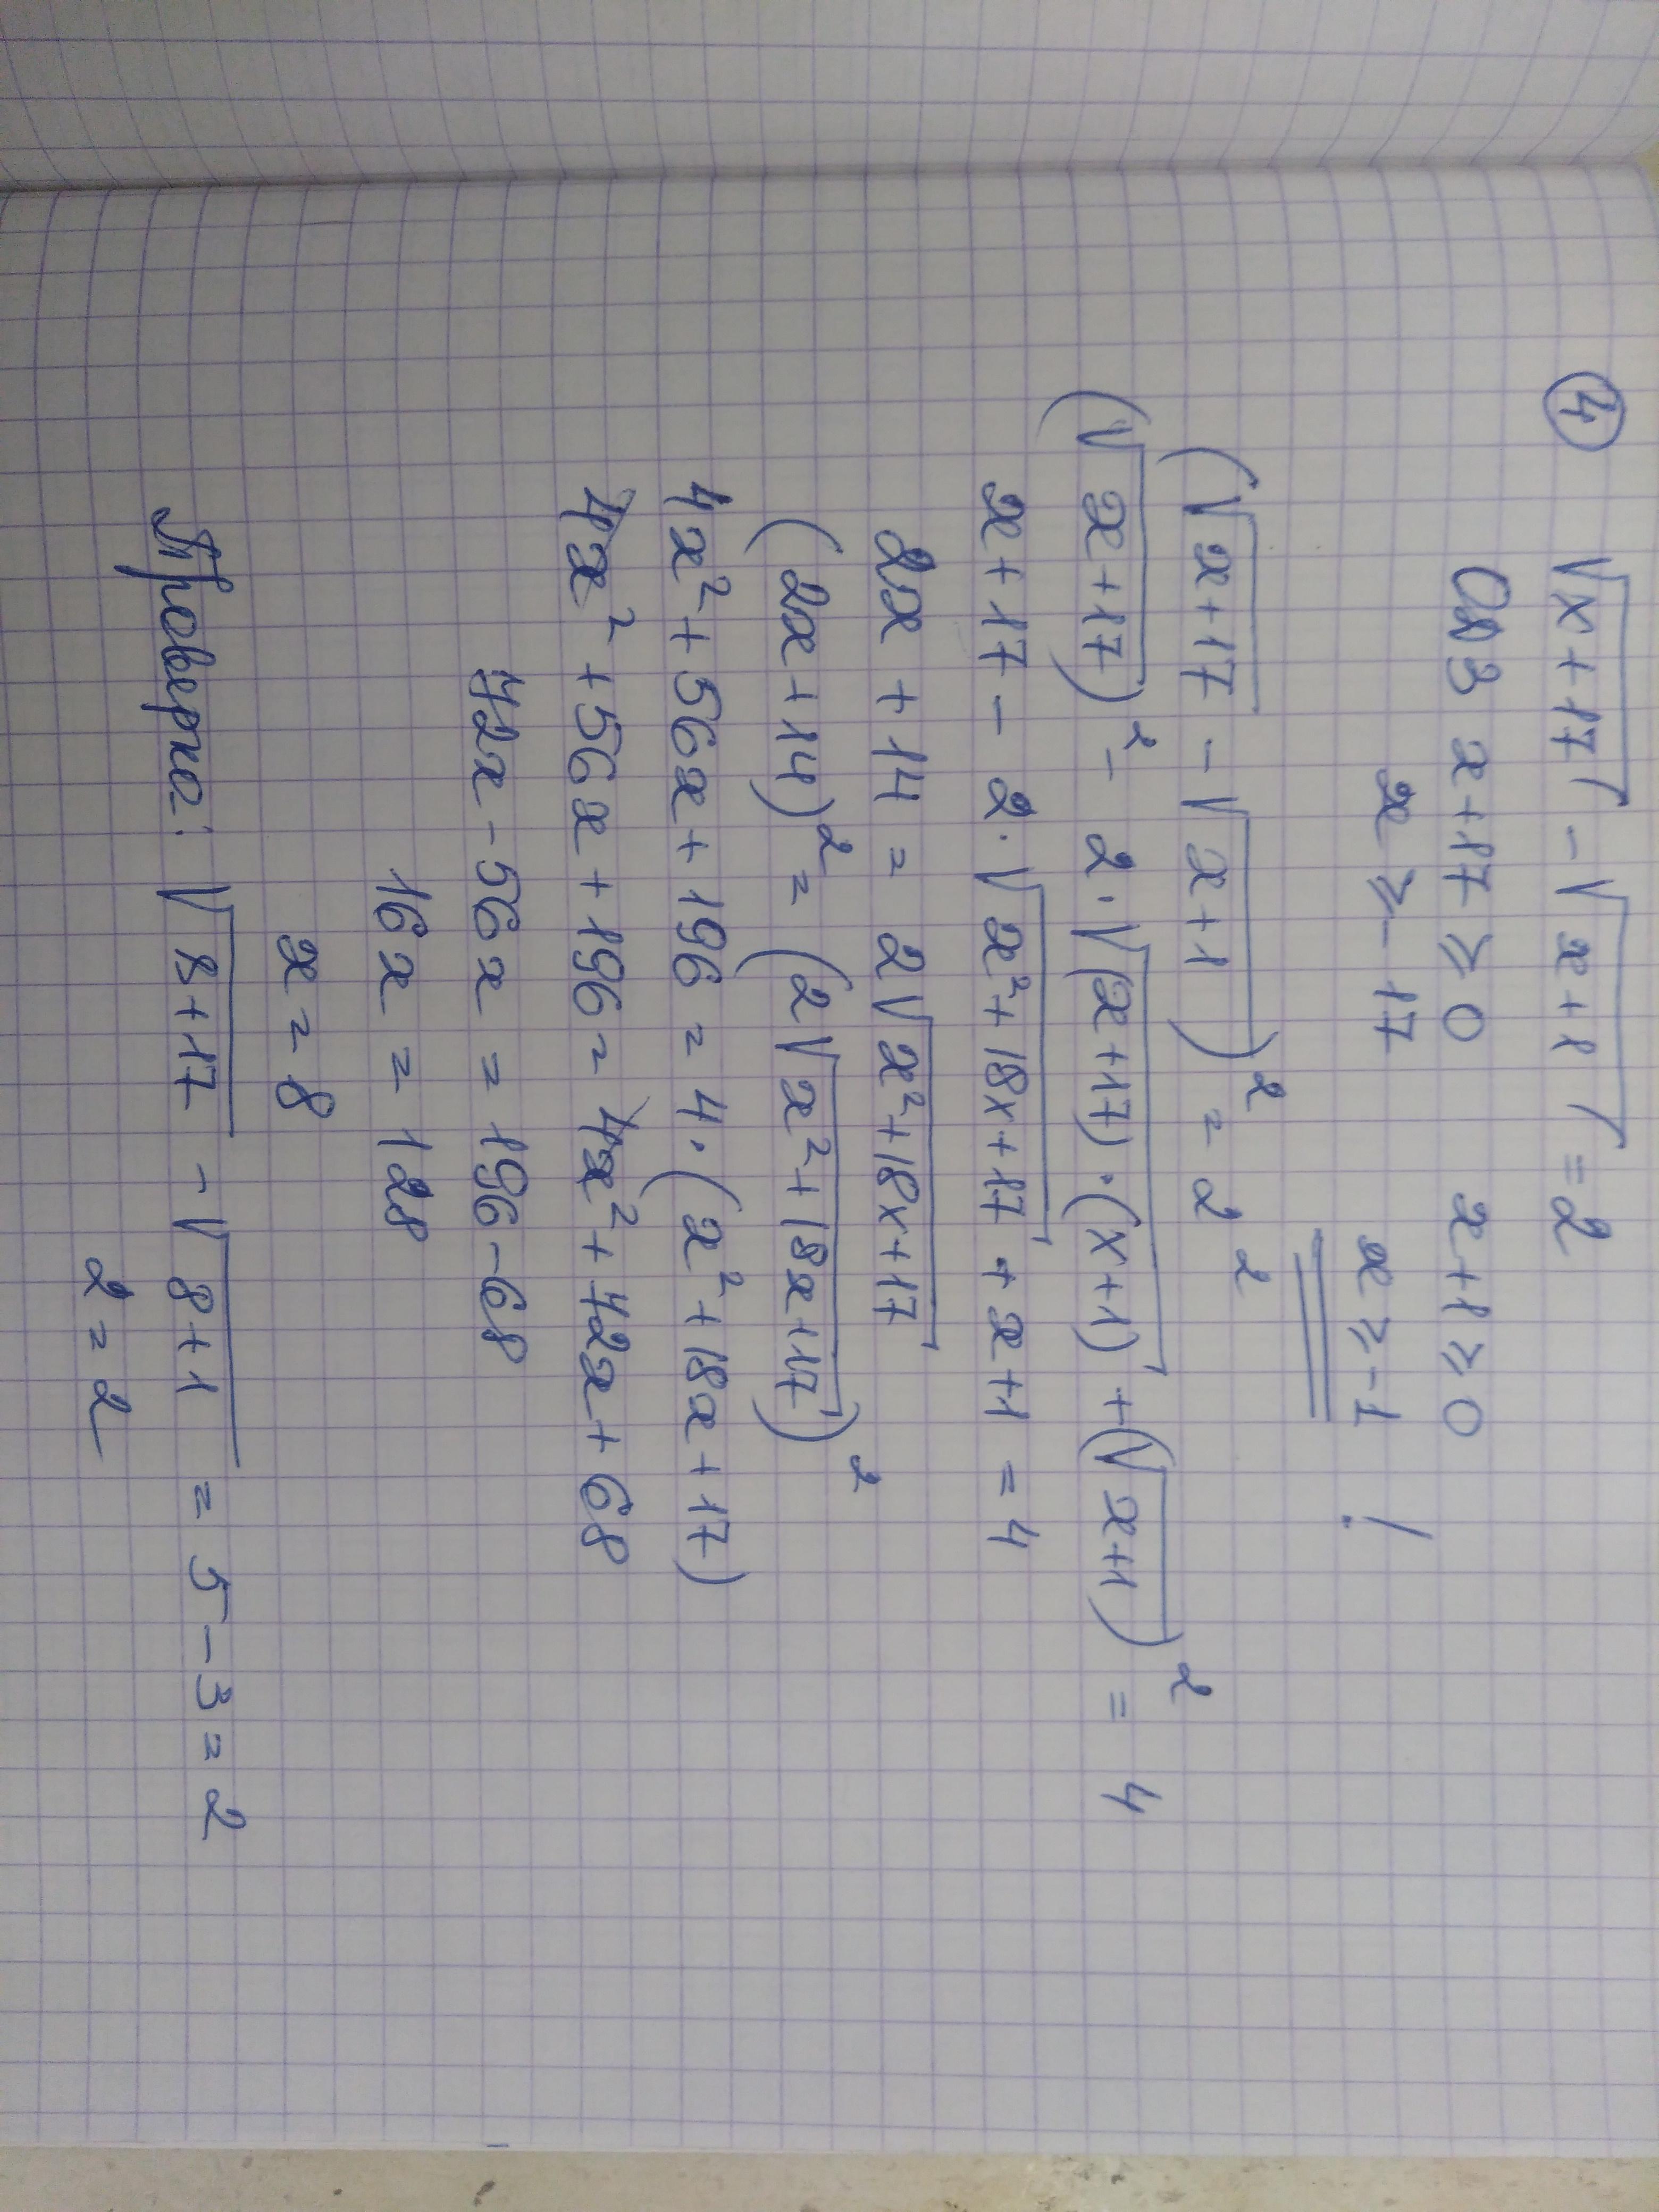 ④ √x+17 - √x+1 = 2
ОДЗ x+17 ≥ 0 x+1 ≥ 0
x ≥ -17 x ≥ -1 !
(√x+17 - √x+1)² = 2²
(√x+17)² - 2·√(x+17)·(x+1) + (√x+1)² = 4
x+17 - 2·√x²+18x+17 + x+1 = 4
2x + 14 = 2√x²+18x+17
(2x+14)² = (2√x²+18x+17)²
4x² + 56x + 196 = 4·(x²+18x+17)
4x² + 56x + 196 = 4x² + 72x + 68
72x - 56x = 196 - 68
16x = 128
x = 8
Проверка: √8+17 - √8+1 = 5 - 3 = 2
2 = 2